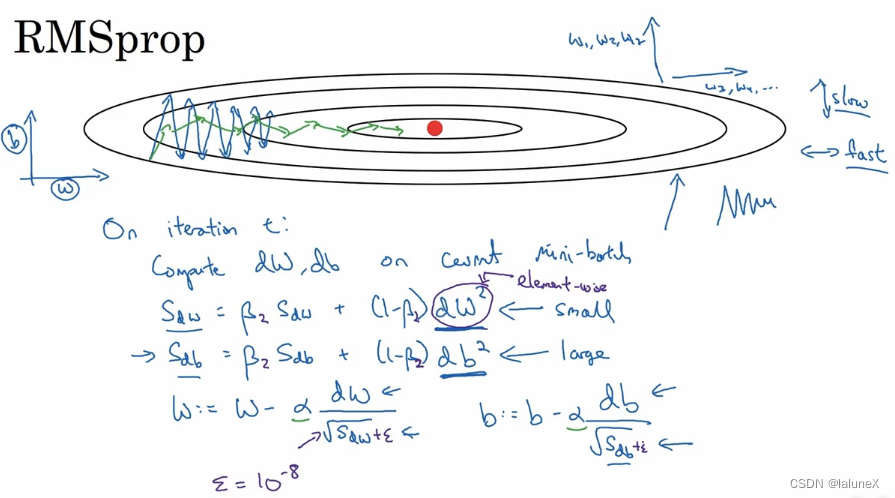 RMSprop
w₁, w₂, w₂
w₃, w₄, ...
slow
fast
b
w
On iteration t:
Compute dW, db on current mini-batch
element-wise
S_dw = β₂ S_dw + (1-β₂) dW² ← small
→ S_db = β₂ S_db + (1-β₂) db² ← large
w := w - α dw/√S_dw+ε ←
b := b - α db/√S_db+ε ←
ε = 10⁻⁸
CSDN @laluneX